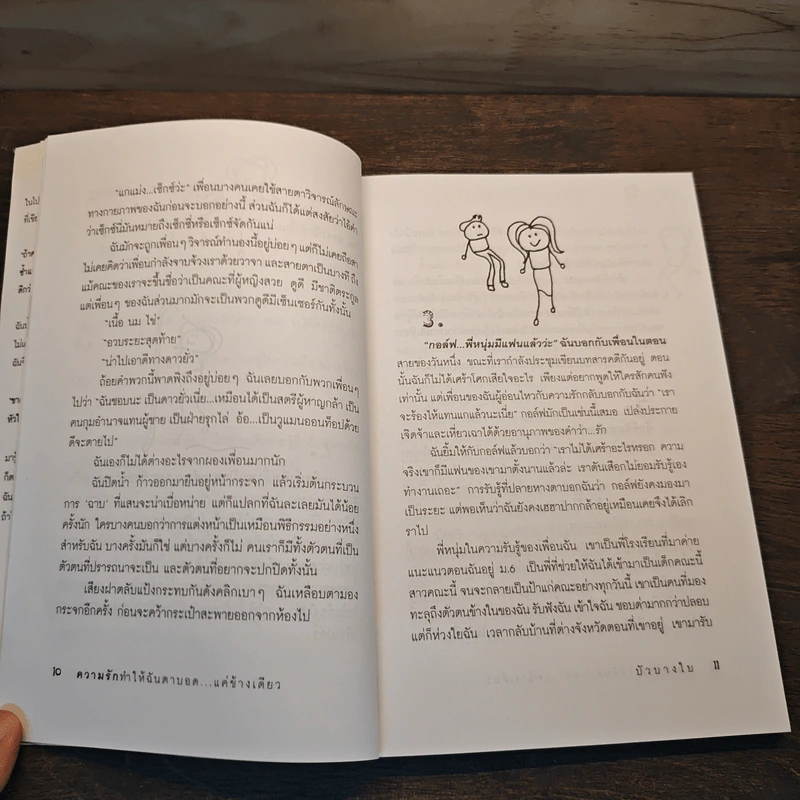 "แกแม่ง...เซ็กซ์ว่ะ" เพื่อนบางคนเคยใช้สายตาวิจารณ์ลักษณะ
ทางกายภาพของฉันก่อนจะบอกอย่างนี้ ส่วนฉันก็ได้แต่สงสัยว่าไอ้คำ
ว่าเซ็กซ์นี่มันหมายถึงเซ็กซี่หรือเซ็กซ์จัดกันแน่
ฉันมักจะถูกเพื่อนๆ วิจารณ์ทำนองนี้อยู่บ่อยๆ แต่ก็ไม่เคยถือสา
ไม่เคยคิดว่าเพื่อนกำลังจาบจ้วงเราด้วยวาจา และสายตาเป็นบางที ถึง
แม้คณะของเราจะขึ้นชื่อว่าเป็นคณะที่ผู้หญิงสวย ดูดี มีชาติตระกูล
แต่เพื่อนๆ ของฉันส่วนมากมักจะเป็นพวกดูดีมีเซ็นเซอร์กันทั้งนั้น
"เนื้อ นม ไข่"
"อวบระยะสุดท้าย"
"น่าไปเอาดีทางดาวยั่ว"
ถ้อยคำพวกนี้พาดพิงถึงอยู่บ่อยๆ ฉันเลยบอกกับพวกเพื่อนๆ
ไปว่า "ฉันชอบนะ เป็นดาวยั่วเนี่ย...เหมือนได้เป็นสตรีผู้หาญกล้า เป็น
คนกุมอำนาจแทนผู้ชาย เป็นฝ่ายรุกไล่ อ้อ...เป็นวูแมนออนท็อปด้วย
ดีจะตายไป"
ฉันเองก็ไม่ได้ต่างอะไรจากผองเพื่อนมากนัก
ฉันปิดน้ำ ก้าวออกมายืนอยู่หน้ากระจก แล้วเริ่มต้นกระบวน
การ 'ฉาบ' ที่แสนจะน่าเบื่อหน่าย แต่ก็แปลกที่ฉันละเลยมันได้น้อย
ครั้งนัก ใครบางคนบอกว่าการแต่งหน้าเป็นเหมือนพิธีกรรมอย่างหนึ่ง
สำหรับฉัน บางครั้งมันก็ใช่ แต่บางครั้งก็ไม่ คนเราก็มีทั้งตัวตนที่เป็น
ตัวตนที่ปรารถนาจะเป็น และตัวตนที่อยากจะปกปิดทั้งนั้น
เสียงฝาตลับแป้งกระทบกันดังคลิกเบาๆ ฉันเหลือบตามอง
กระจกอีกครั้ง ก่อนจะคว้ากระเป๋าสะพายออกจากห้องไป
10 ความรักทำให้ฉันตาบอด...แค่ข้างเดียว
3.
"กอล์ฟ...พี่หนุ่มมีแฟนแล้วว่ะ" ฉันบอกกับเพื่อนในตอน
สายของวันหนึ่ง ขณะที่เรากำลังประชุมเขียนบทสารคดีกันอยู่ ตอน
นั้นฉันก็ไม่ได้เศร้าโศกเสียใจอะไร เพียงแต่อยากพูดให้ใครสักคนฟัง
เท่านั้น แต่เพื่อนของฉันผู้อ่อนไหวกับความรักกลับบอกกับฉันว่า "เรา
จะร้องไห้แทนแกแล้วนะเนี่ย" กอล์ฟมักเป็นเช่นนี้เสมอ เปล่งประกาย
เจิดจ้าและเหี่ยวเฉาได้ด้วยอานุภาพของคำว่า...รัก
ฉันยิ้มให้กับกอล์ฟแล้วบอกว่า "เราไม่ได้เศร้าอะไรหรอก ความ
จริงเขาก็มีแฟนของเขามาตั้งนานแล้วล่ะ เราดันเสือกไม่ยอมรับรู้เอง
ทำงานเถอะ" การรับรู้ที่ปลายหางตาบอกฉันว่า กอล์ฟยังคงมองมา
เป็นระยะ แต่พอเห็นว่าฉันยังคงเฮฮาปากกล้าอยู่เหมือนเคยจึงได้เลิก
ราไป
พี่หนุ่มในความรับรู้ของเพื่อนฉัน เขาเป็นพี่โรงเรียนที่มาค่าย
แนะแนวตอนฉันอยู่ ม.6 เป็นพี่ที่ช่วยให้ฉันได้เข้ามาเป็นเด็กคณะนี้
สาวคณะนี้ จนจะกลายเป็นป้าแก่คณะอย่างทุกวันนี้ เขาเป็นคนที่มอง
ทะลุถึงตัวตนข้างในของฉัน รับฟังฉัน เข้าใจฉัน ชอบด่ามากกว่าปลอบ
แต่ก็ห่วงใยฉัน เวลากลับบ้านที่ต่างจังหวัดตอนที่เขาอยู่ เขามารับ
บัวบางใบ 11